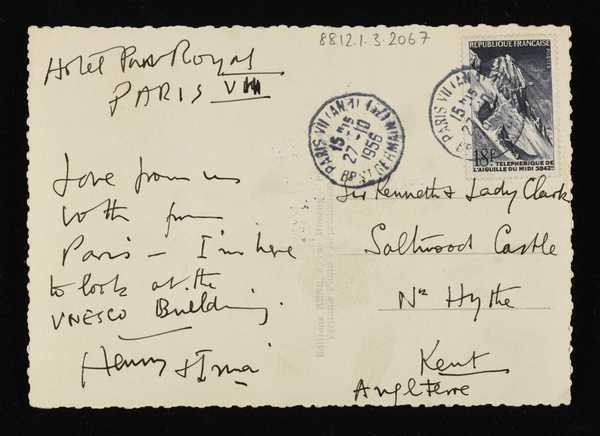 8812.1.3.2067
Hotel Pont Royal
PARIS VII
Love from us
both from
Paris – I'm here
to look at the
UNESCO Building.
Henry & Irina
REPUBLIQUE FRANÇAISE
18F
TÉLÉPHÉRIQUE DE
L'AIGUILLE DU MIDI 3842m
PARIS VII
15H15
27-10
1956
BD ST GERMAIN
PARIS VII
15H15
27
Sir Kenneth & Lady Clark
Saltwood Castle
Nr Hythe
Kent
Angleterre